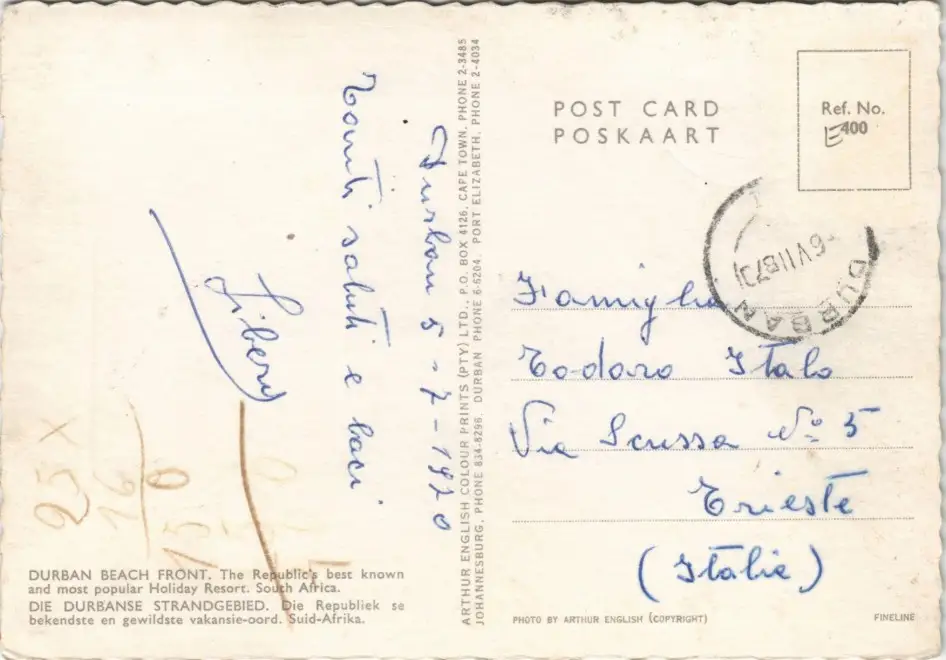 Durban 5-7-1970
Tanti saluti e baci
DURBAN BEACH FRONT. The Republic's best known
and most popular Holiday Resort. South Africa.
DIE DURBANSE STRANDGEBIED. Die Republiek se
bekendste en gewildste vakansie-oord. Suid-Afrika.
ARTHUR ENGLISH COLOUR PRINTS (PTY) LTD., P.O. BOX 4126, CAPE TOWN, PHONE 2-3485
JOHANNESBURG, PHONE 834-8296. DURBAN PHONE 6-6204. PORT ELIZABETH, PHONE 2-4034
POST CARD
POSKAART
Ref. No.
E400
DURBAN
Famiglia
Todaro Italo
Via Scussa No 5
Trieste
(Italia)
PHOTO BY ARTHUR ENGLISH (COPYRIGHT)
FINELINE
25 x
16